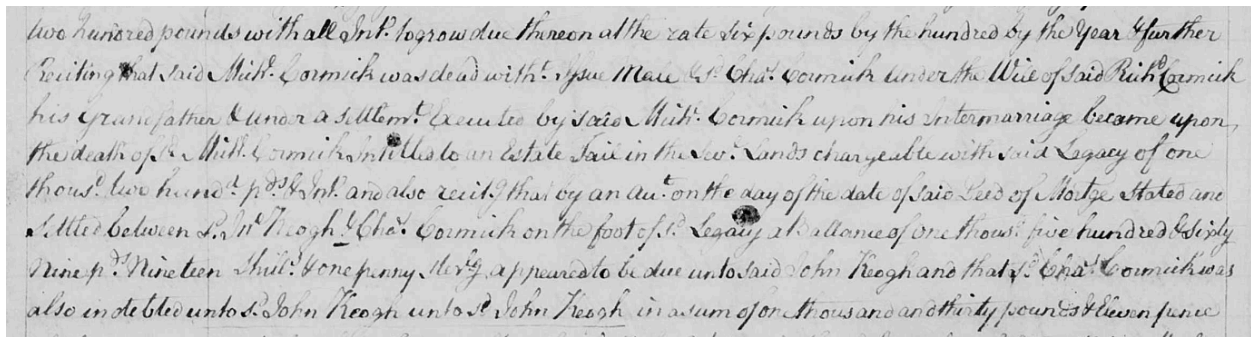 two hundred pounds with all Int. to grow due thereon at the rate six pounds by the hundred by the Year & further
Reciting that said Mich. Cormick was dead with.t Issue Male & s.d Cha.s Cormick under the Will of said Rich.d Cormick
his Grandfather & under a settlem.t Executed by said Mich. Cormick upon his Intermarriage became upon
the death of s.d Mich. Cormick Intitled to an Estate Tail in the Sev.l Lands chargeable with said Legacy of one
thous.d two hund.d p.ds & Int. and also recit.g that by an Acc.t on the day of the date of said Deed of Mortge Stated and
Settled between s.d Jn.o Keogh & Cha.s Cormick on the foot of s.d Legacy a Ballance of one thous.d five hundred & Sixty
Nine p.ds Nineteen Shill.s & one penny Ster.g appeared to be due unto said John Keogh and that s.d Cha.s Cormick was
also indebted unto s.d John Keogh unto s.d John Keogh in a sum of one thousand and thirty pounds & Eleven pence